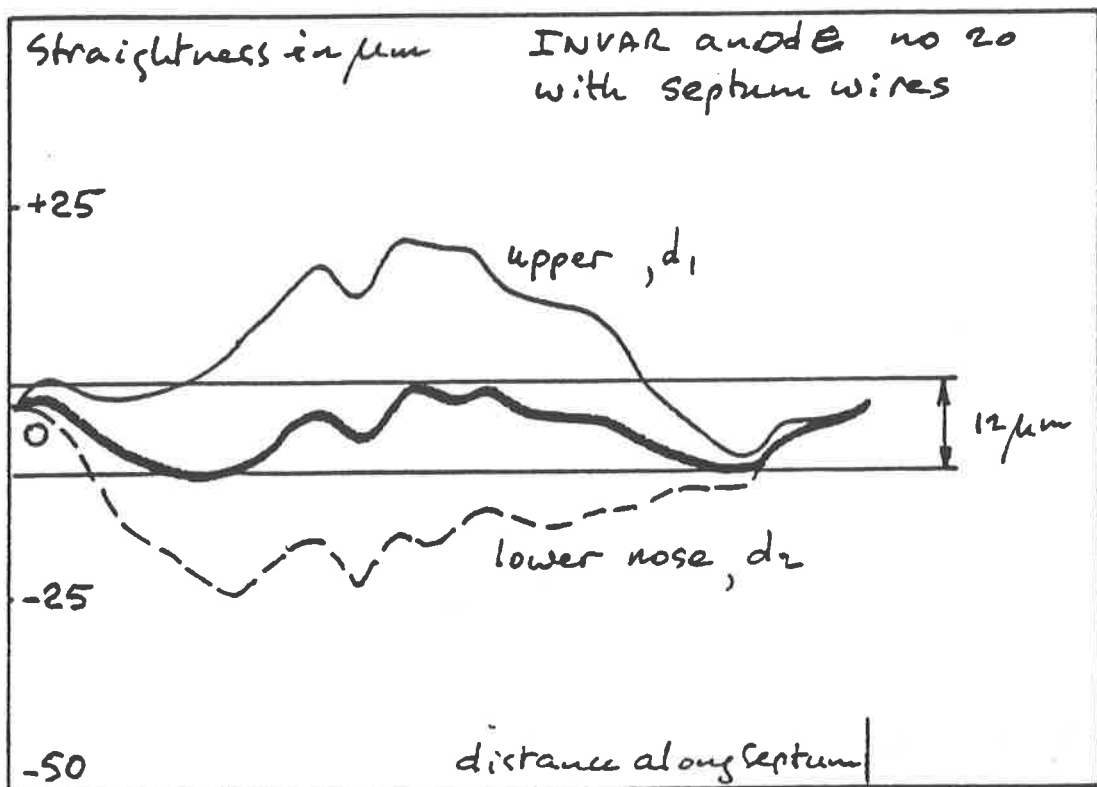 Straightness in μm
INVAR anode no 20
with septum wires
+25
upper, d1
0
12 μm
lower nose, d2
-25
-50
distance along septum